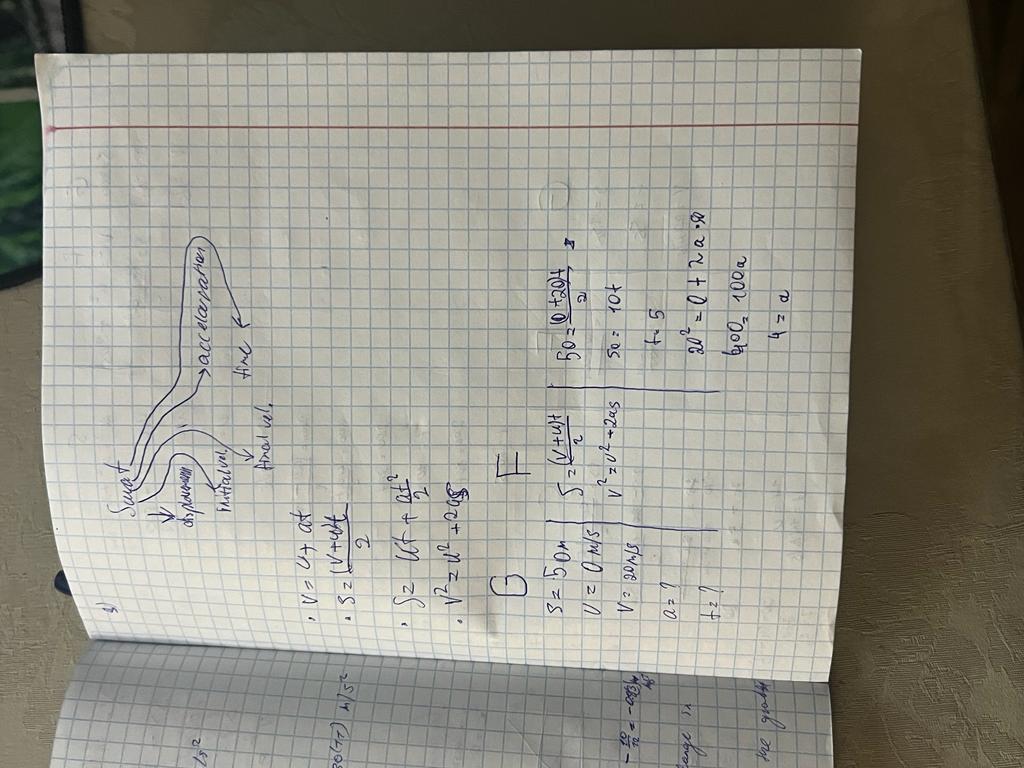 3)
Suvat
displacement
initial vel.
final vel.
acceleration
time
· v = u + at
· s = (v+u)t / 2
· s = ut + at² / 2
· v² = u² + 2as
G
F
s = 50m
u = 0 m/s
v = 20m/s
a = ?
t = ?
s = (v+u)t / 2
v² = u² + 2as
50 = (0+20)t / 2
50 = 10t
t = 5
20² = 0 + 2a·50
400 = 100a
4 = a
/s²
m/s²
the